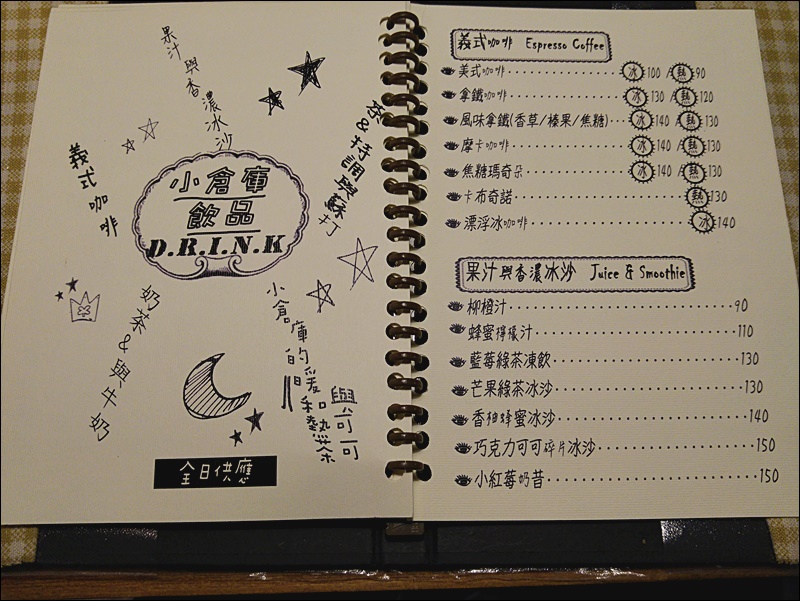 果汁與香濃冰沙
茶&特調與蘇打
義式咖啡
小倉庫
飲品
D.R.I.N.K
奶茶&與牛奶
小倉庫的暖
與可可
全日供應
義式咖啡 Espresso Coffee
美式咖啡 冰 100 / 熱 90
拿鐵咖啡 冰 130 / 熱 120
風味拿鐵(香草/榛果/焦糖) 冰 140 / 熱 130
摩卡咖啡 冰 140 / 熱 130
焦糖瑪奇朵 冰 140 / 熱 130
卡布奇諾 熱 130
漂浮冰咖啡 冰 140
果汁與香濃冰沙 Juice & Smoothie
柳橙汁 90
蜂蜜檸檬汁 110
藍莓綠茶凍飲 130
芒果綠茶冰沙 130
香柚蜂蜜冰沙 140
巧克力可可碎片冰沙 150
小紅莓奶昔 150